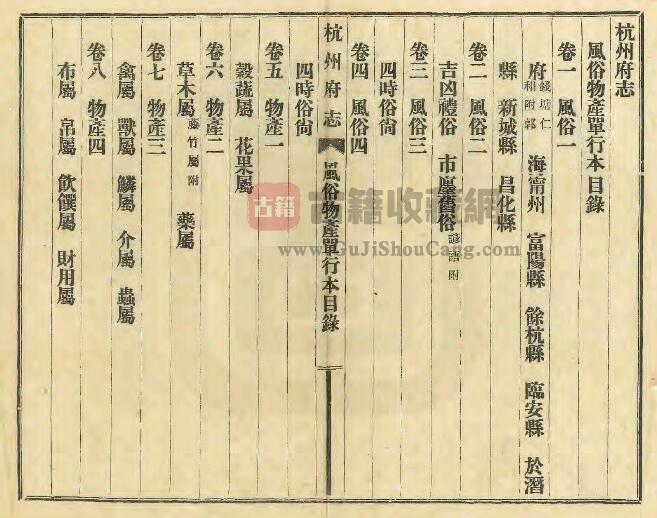 杭州府志
風俗物產單行本目錄
卷一 風俗一
府 錢塘仁和附郭 海甯州 富陽縣 餘杭縣 臨安縣 於潛
縣 新城縣 昌化縣
卷二 風俗二
吉凶禮俗 市廛舊俗 諺語附
卷三 風俗三
四時俗尙
卷四 風俗四
杭州府志 風俗物產單行本目錄
四時俗尙
卷五 物產一
穀蔬屬 花果屬
卷六 物產二
草木屬 藤竹屬附 藥屬
卷七 物產三
禽屬 獸屬 鱗屬 介屬 蟲屬
卷八 物產四
布屬 帛屬 飲饌屬 財用屬
古籍 古籍收藏網
www.GuJiShouCang.com